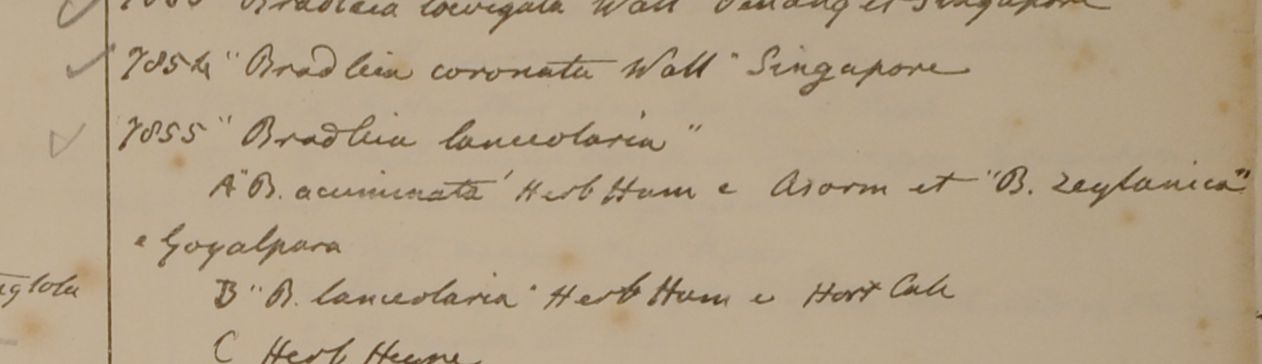 Bradleia laevigata Wall Penang et Singapore
7854 "Bradleia coronata Wall" Singapore
7855 "Bradleia lanceolaria"
A "B. acuminata" Herb Ham e Asorm et "B. zeylanica"
e Goyalpara
B "B. lanceolaria" Herb Ham e Hort Calc
C Herb Heyne